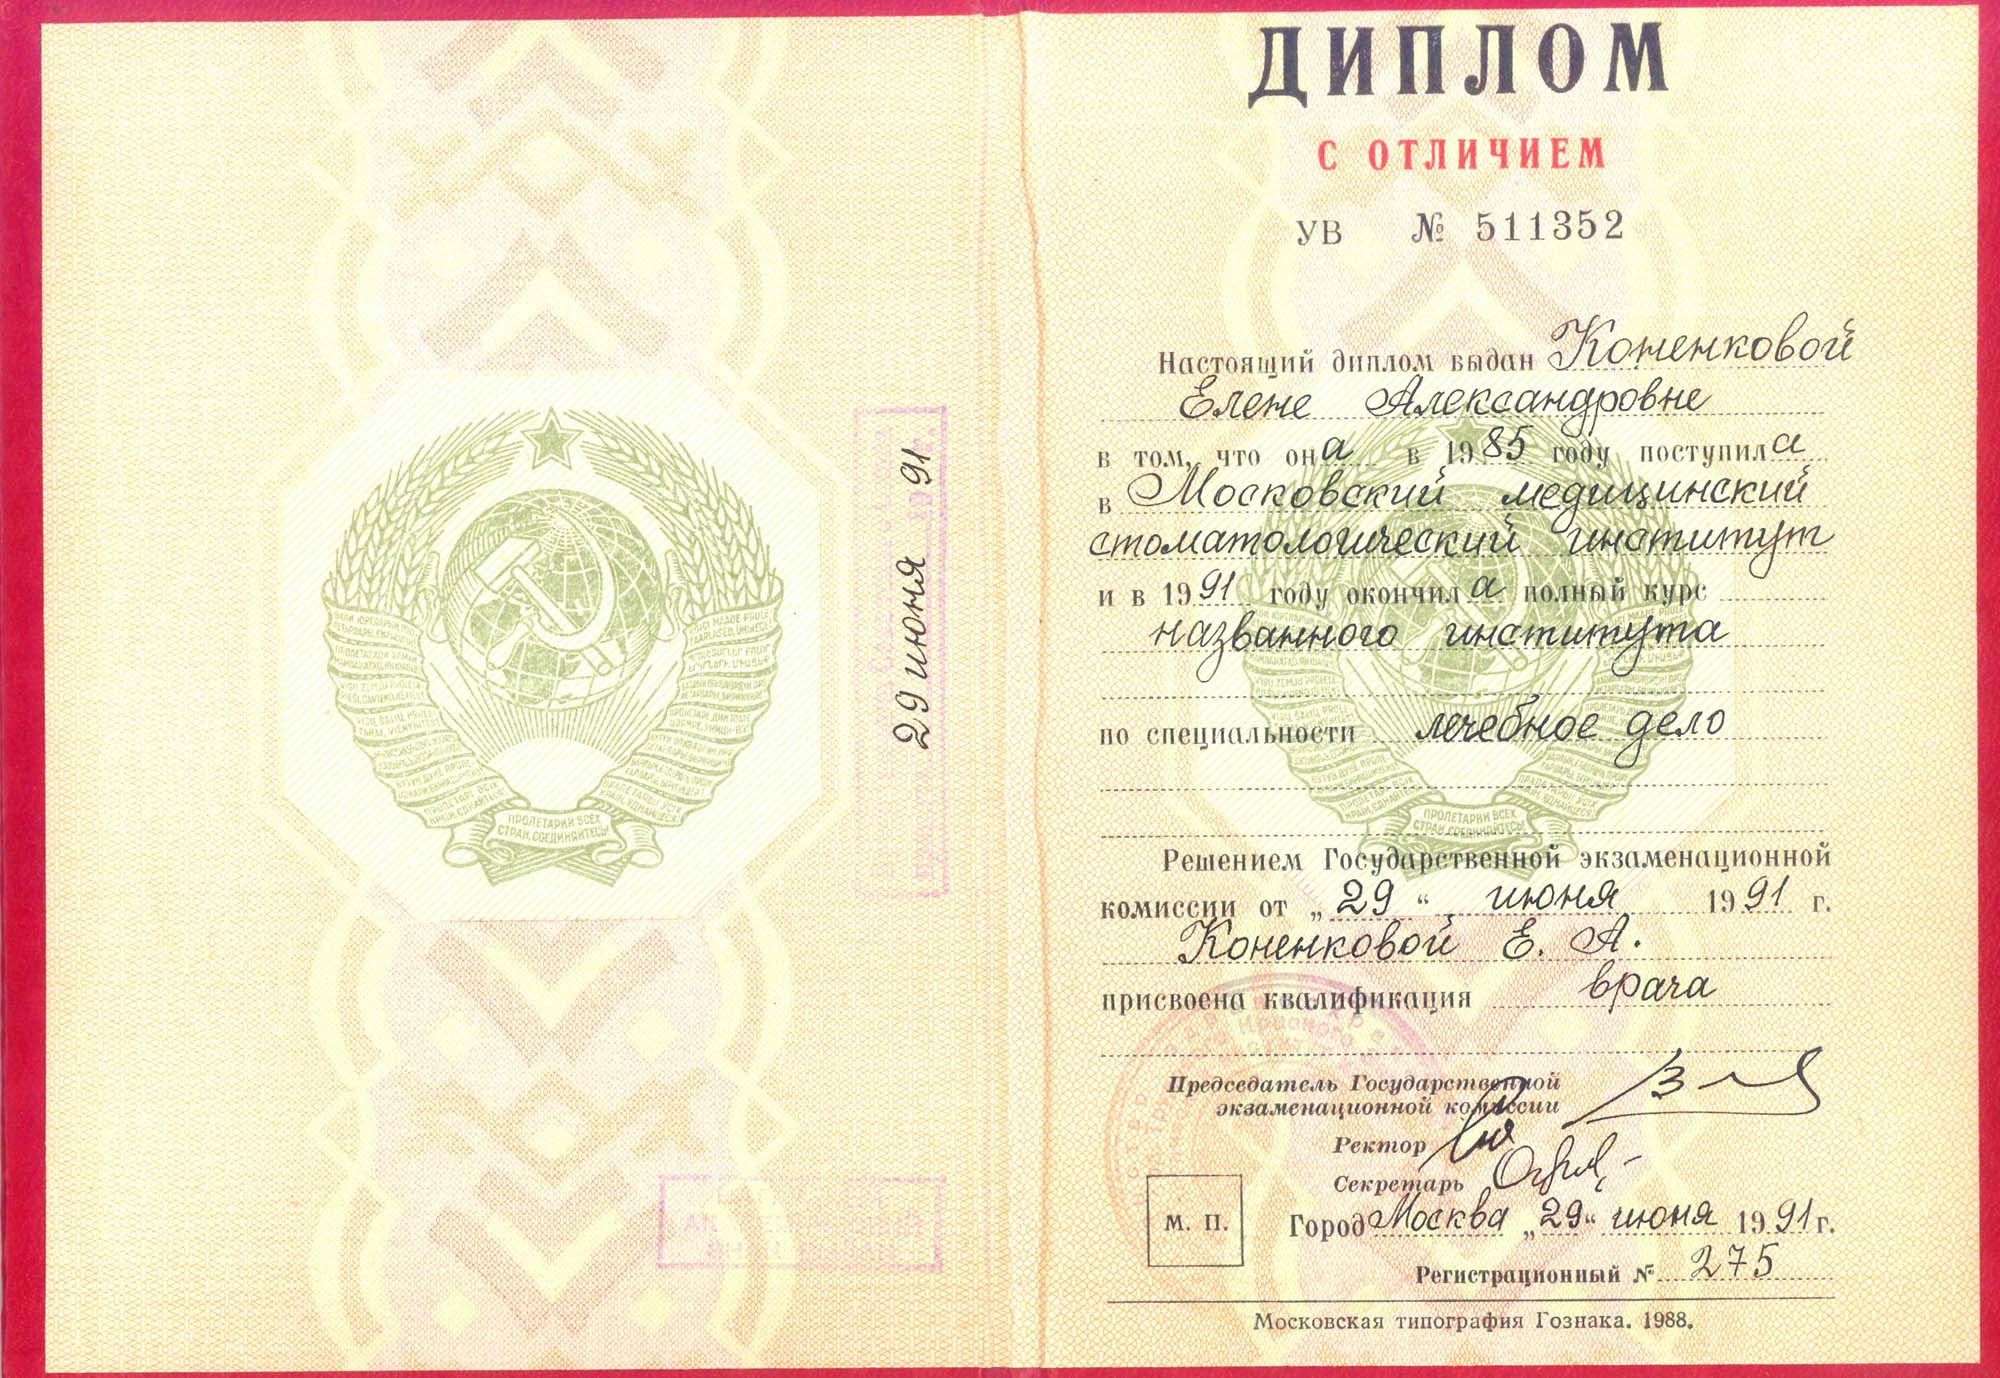 29 июня 91 г.
ПРОЛЕТАРИИ ВСЕХ
СТРАН, СОЕДИНЯЙТЕСЬ!
ДИПЛОМ
С ОТЛИЧИЕМ
УВ № 511352
Настоящий диплом выдан Коненковой
Елене Александровне
в том, что она в 1985 году поступила
в Московский медицинский
стоматологический институт
и в 1991 году окончила полный курс
названного института
по специальности лечебное дело
ПРОЛЕТАРИИ ВСЕХ
СТРАН, СОЕДИНЯЙТЕСЬ!
Решением Государственной экзаменационной
комиссии от „29“ июня 1991 г.
Коненковой Е. А.
присвоена квалификация врача
Председатель Государственной
экзаменационной комиссии
Ректор
Секретарь
М. П.
Город Москва „29“ июня 1991 г.
Регистрационный № 275
Московская типография Гознака. 1988.